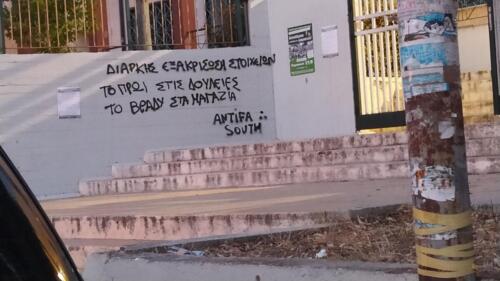 ΔΙΑΡΚΗΣ ΕΞΑΚΡΙΒΩΣΗ ΣΤΟΙΧΕΙΩΝ
ΤΟ ΠΡΩΙ ΣΤΙΣ ΔΟΥΛΕΙΕΣ
ΤΟ ΒΡΑΔΥ ΣΤΑ ΜΑΓΑΖΙΑ
ANTIFA
SOUTH